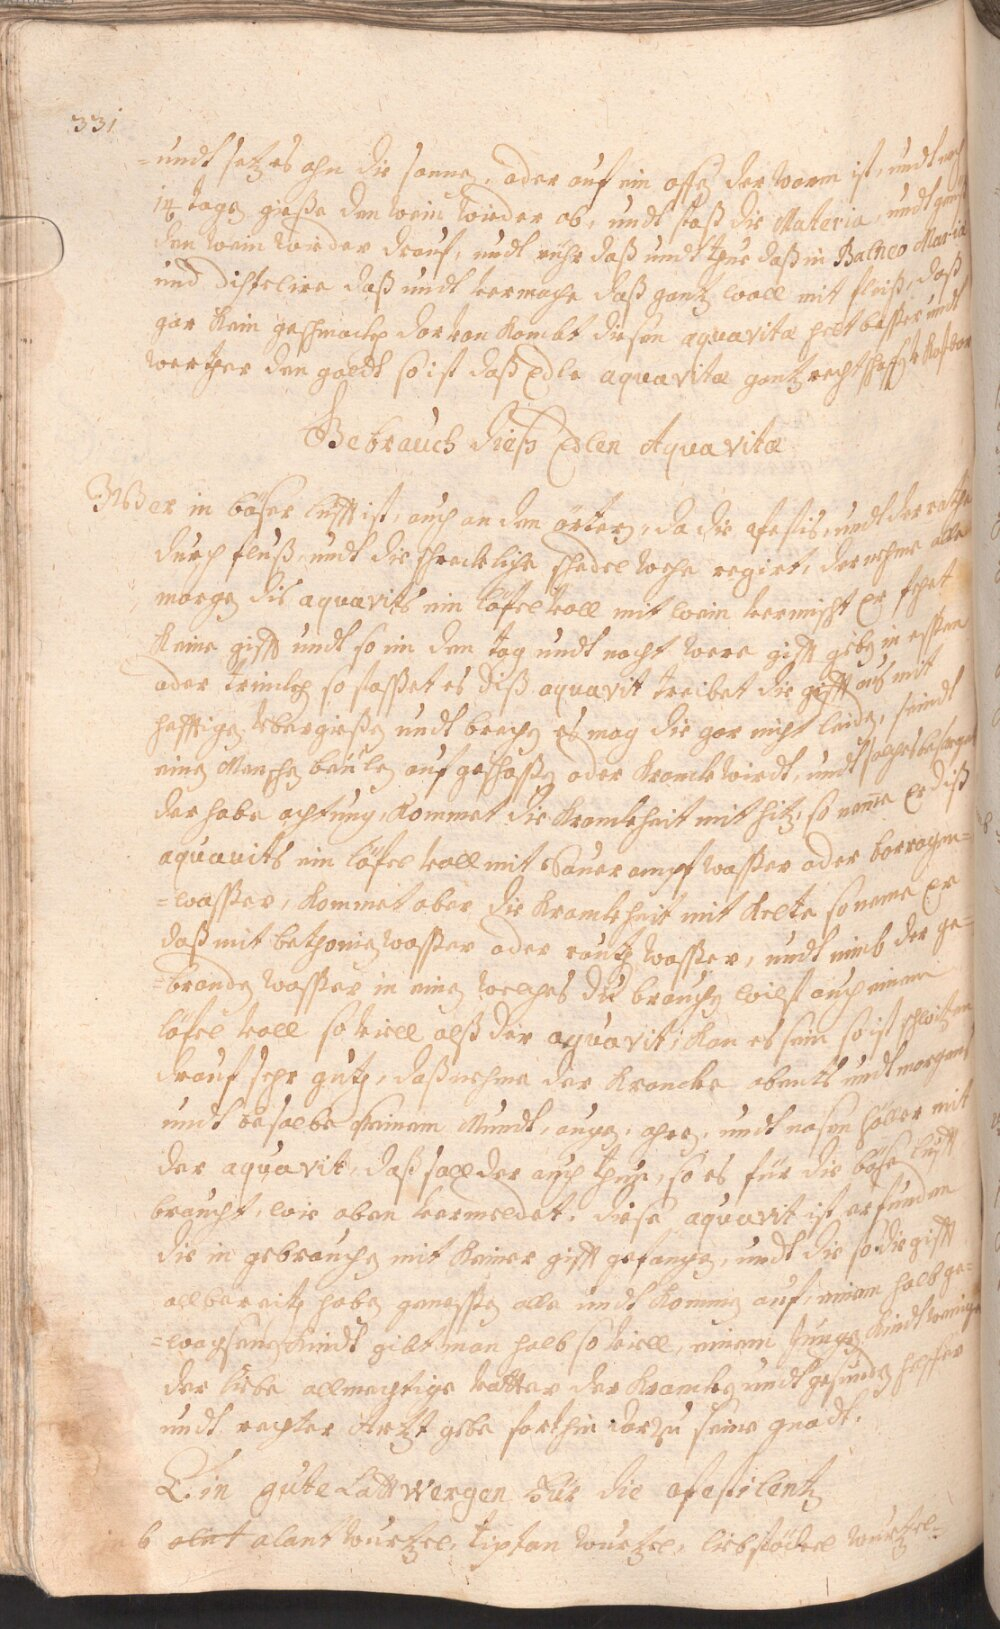 331
=undt setz es ahn die sonne, oder auf ein offen der warm ist, undt nach
14 tagen gieße den wein wieder ab, undt stoß die Materia, undt
den wein wieder drauf, undt rühr daß undt thue daß in Balneo Maria
und distelire daß undt vermache daß gantz woll mit fleiß, daß
gar kein geschmack darvon kombt diesen aquavitæ helt besser undt
werther den goldt so ist daß Edle aquavitæ gantz rechtschaffen
Gebrauch dieß Edlen Aquavitæ
Wer in böser lufft ist, auch an den örtern, da die Pestis, undt der rothe
durch fluß, undt die schreckliche schedel wehe regirt, der nehme alle
morgen dis aquavits ein löfel voll mit wein vermischt Er
keine gifft undt so im den tag undt nacht were gifft geben in essen
oder trincken so stosset es diß aquavit treibet die gifft auß mit
hefftigen ubergießen undt brechen es mag die gar nicht leiden, seindt
einen Menschen beülen aufgeschossen oder kranck wirdt, undt
der habe achtung, kommet die kranckheit mit hitz, so neme Er diß
aquavits ein löfel voll mit Sauerampf wasser oder borragen=
=wasser, kommet aber die kranckheit mit kelte so neme Er
daß mit bethonien wasser oder rauten wasser, undt nimb der ge=
=branden wasser in einen welches du brauchen wilst auch einen
löfel voll so viell alß der aquavit, kan es sein so ist schwitzen
drauf sehr gutt, daß nehme der krancke abents undt morgens
undt besalbe seinem Mundt, augen, ohren, undt nasen höller mit
der aquavit, daß soll der auch thun, so es für die böse lufft
braucht, wie oben vermeldet. diese aquavit ist erfunden
die in gebrauchen mit keiner gifft gefangen, undt die so die gifft
allbereitz haben genossen alle undt kommen auf, einem halb ge=
=wachsenen kindt gibt man halb so viell, einem jungen kindt weniger
der liebe allmechtige vatter der krancken undt gesunden helffer
undt rechter Artzt gebe forthin darzu seine gnadt.
Ein gute Lattwergen Für die Pestilentz
alant wurtzel, tiptan wurtzel, liebstöckel wurtzel=